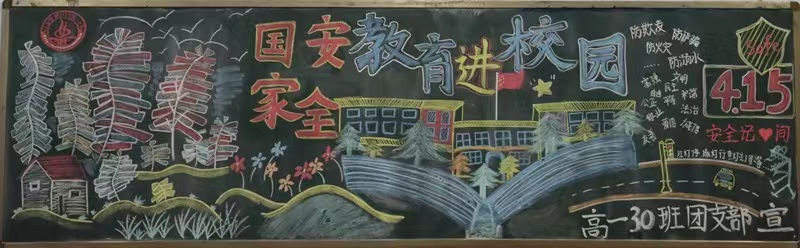 国家安全教育进校园
防欺凌
防诈骗
防火灾
防溺水
……
富强
民主
文明
和谐
自由
平等
公正
法治
爱国
敬业
诚信
友善
Safe
4.15
安全记♥间
高一30班团支部 宣